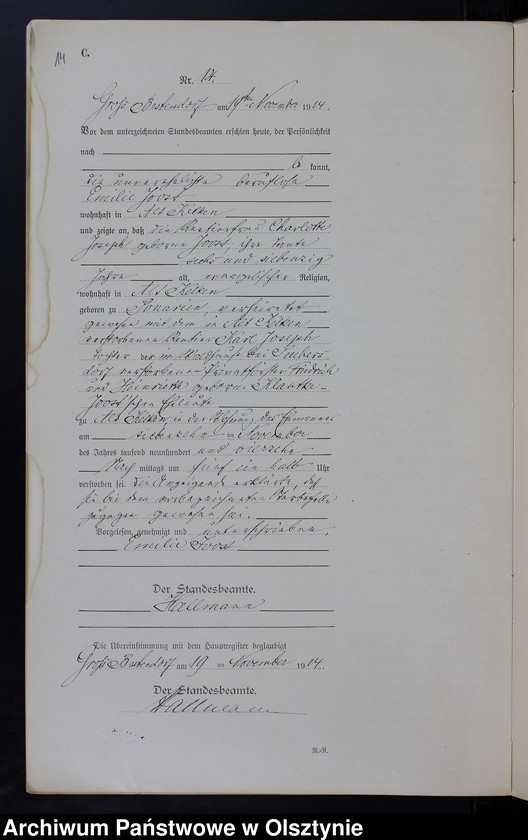 14
C.
Nr. 14.
Groß Bestendorf am 19ten November 1904.
Vor dem unterzeichneten Standesbeamten erschien heute, der Persönlichkeit
nach
be kannt,
die unverehelichte berufslose
Emilie Joost
wohnhaft in Alt Kelken
und zeigte an, daß die Rentierfrau Charlotte
Joseph geborne Joost, ihre Tante
sechs und siebenzig
Jahre alt, evangelischer Religion,
wohnhaft in Alt Kelken
geboren zu Ponarien, verheiratet
gewesen mit dem in Alt Kelken
verstorbenen Rentier Karl Joseph
Tochter der im bei
verstorbenen Friedrich
und Heinriette geborne
Joost'schen Eheleute
zu Alt Kelken, in der Wohnung des
am siebzehn ten November
des Jahres tausend neunhundert und
Nach mittags um fünf ein halb Uhr
verstorben sei. Die Anzeigende erklärte, daß
sie bei dem vorbezeichneten Sterbefalle
zugegen gewesen sei.
Vorgelesen, genehmigt und unterschrieben.
Emilie Joost
Der Standesbeamte.
Hallmann
Die Übereinstimmung mit dem Hauptregister beglaubigt
Groß Bestendorf am 19 ten November 1904.
Der Standesbeamte.
Hallmann
N.-R.
Archiwum Państwowe w Olsztynie